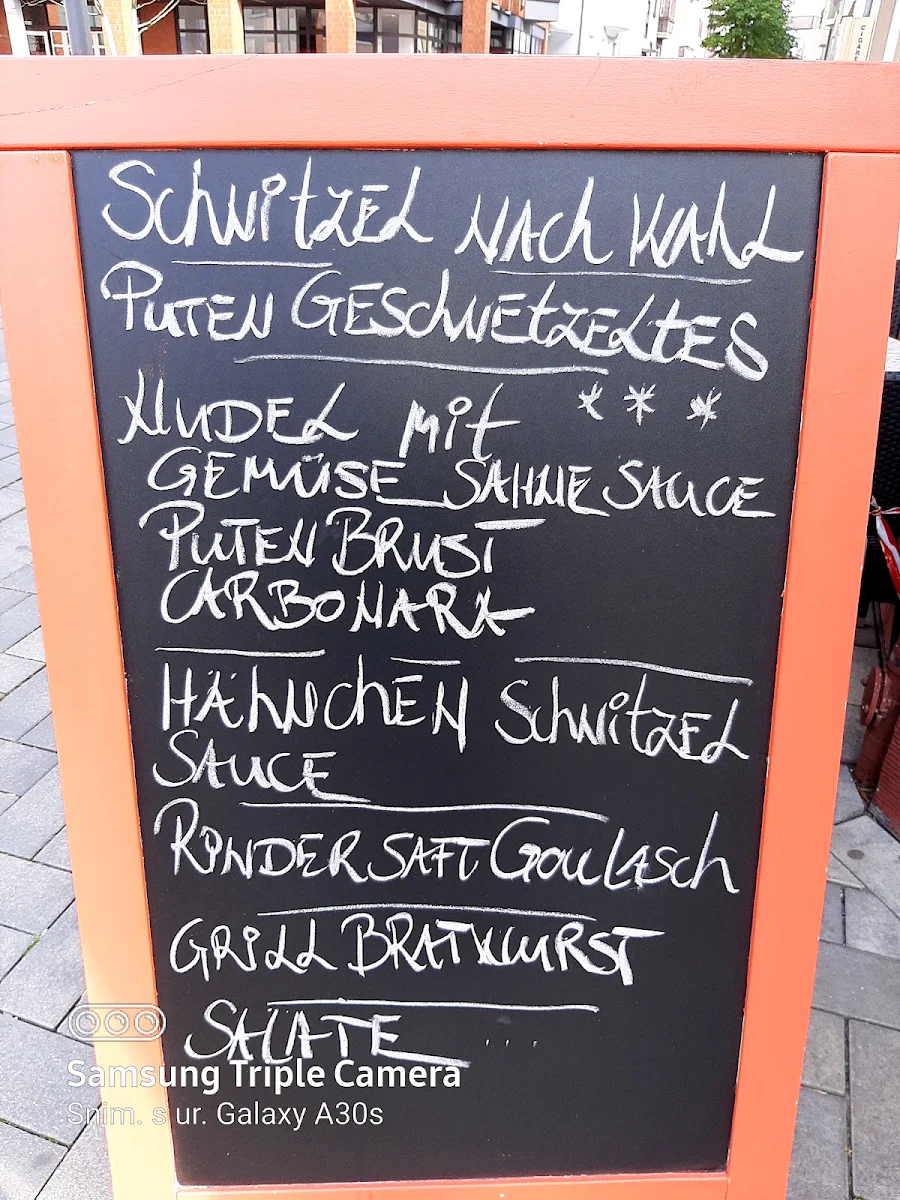 Schnitzel nach Wahl
Puten Geschnetzeltes
Nudel mit ***
Gemüse Sahne Sauce
Puten Brust
Carbonara
Hähnchen Schnitzel
Sauce
Rinder Saft Goulasch
Grill Bratwurst
Salate ....
Samsung Triple Camera
Snim. s ur. Galaxy A30s